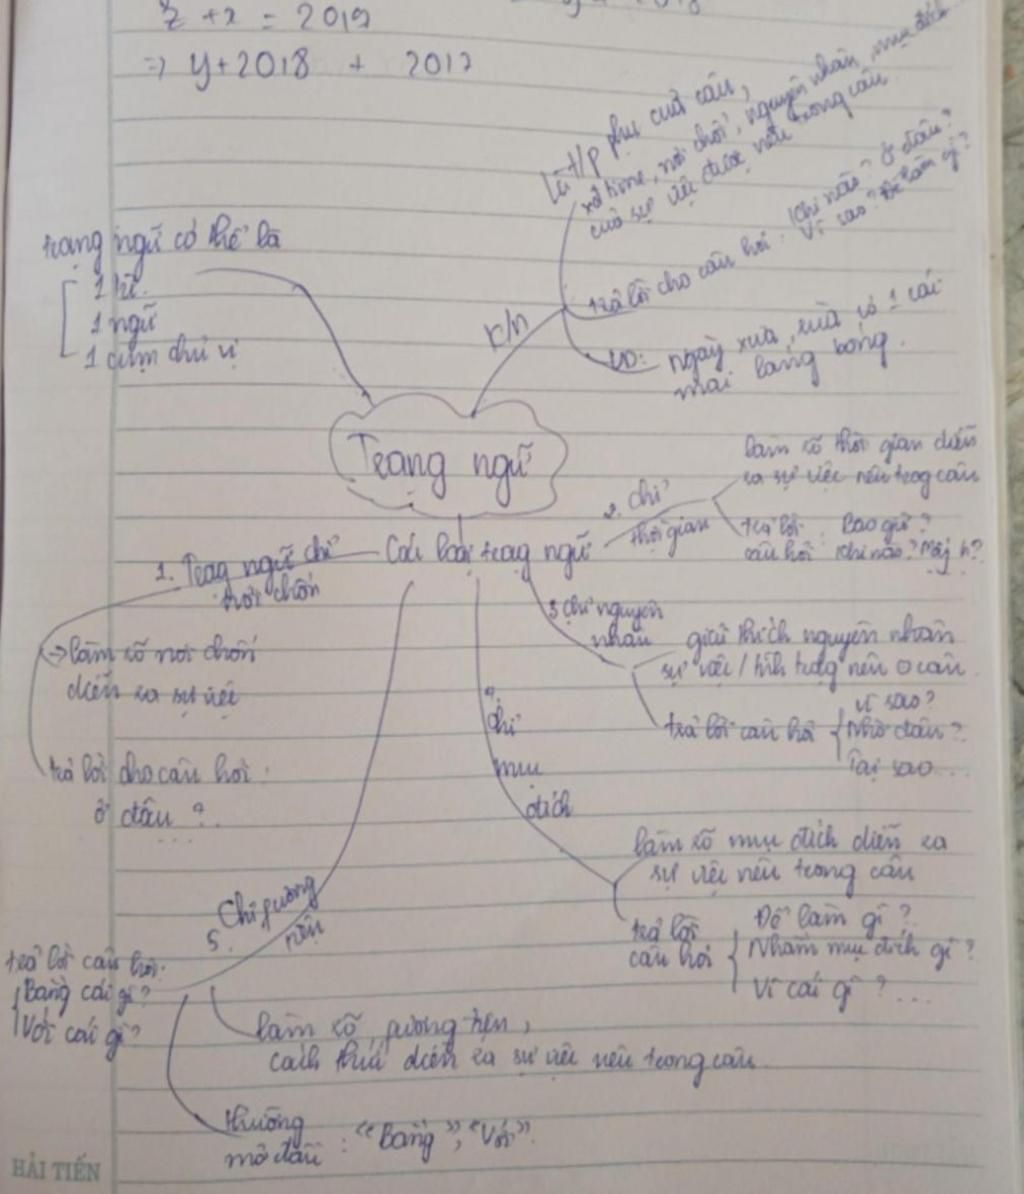 z + x = 2019
=> y + 2018 + 2017
Trạng ngữ có thể là
1 từ.
1 ngữ
1 cụm chủ vị
K/n
Là t/p phụ của câu,
xđ time, nơi chốn, nguyên nhân, mục đích
của sự việc được nêu trong câu
trả lời cho câu hỏi: Khi nào? Ở đâu?
Vì sao? Để làm gì?
VD: ngày xưa, rùa có 1 cái
mai láng bóng.
Trạng ngữ
Các loại trạng ngữ
1. Trạng ngữ chỉ
nơi chốn
-> làm rõ nơi chốn
diễn ra sự việc
trả lời cho câu hỏi:
ở đâu?
...
2. chỉ
thời gian
làm rõ thời gian diễn
ra sự việc nêu trog câu
trả lời
câu hỏi: Bao giờ?
Khi nào? Mấy h?
3 chỉ nguyên
nhân
giải thích nguyên nhân
sự việc / tình trạg nêu o câu
trả lời câu hỏi
Vì sao?
Nhờ đâu?
Tại sao...
4.
chỉ
mục
đích
làm rõ mục đích diễn ra
sự việc nêu trong câu
trả lời
câu hỏi
Để làm gì?
Nhằm mục đích gì?
Vì cái gì?...
5. Chỉ fương
tiện
trả lời câu hỏi:
Bằng cái gì?
Với cái gì?
làm rõ fương tiện,
cách thức diễn ra sự việc nêu trong câu
thường
mở đầu: "Bằng", "Với".
HẢI TIẾN